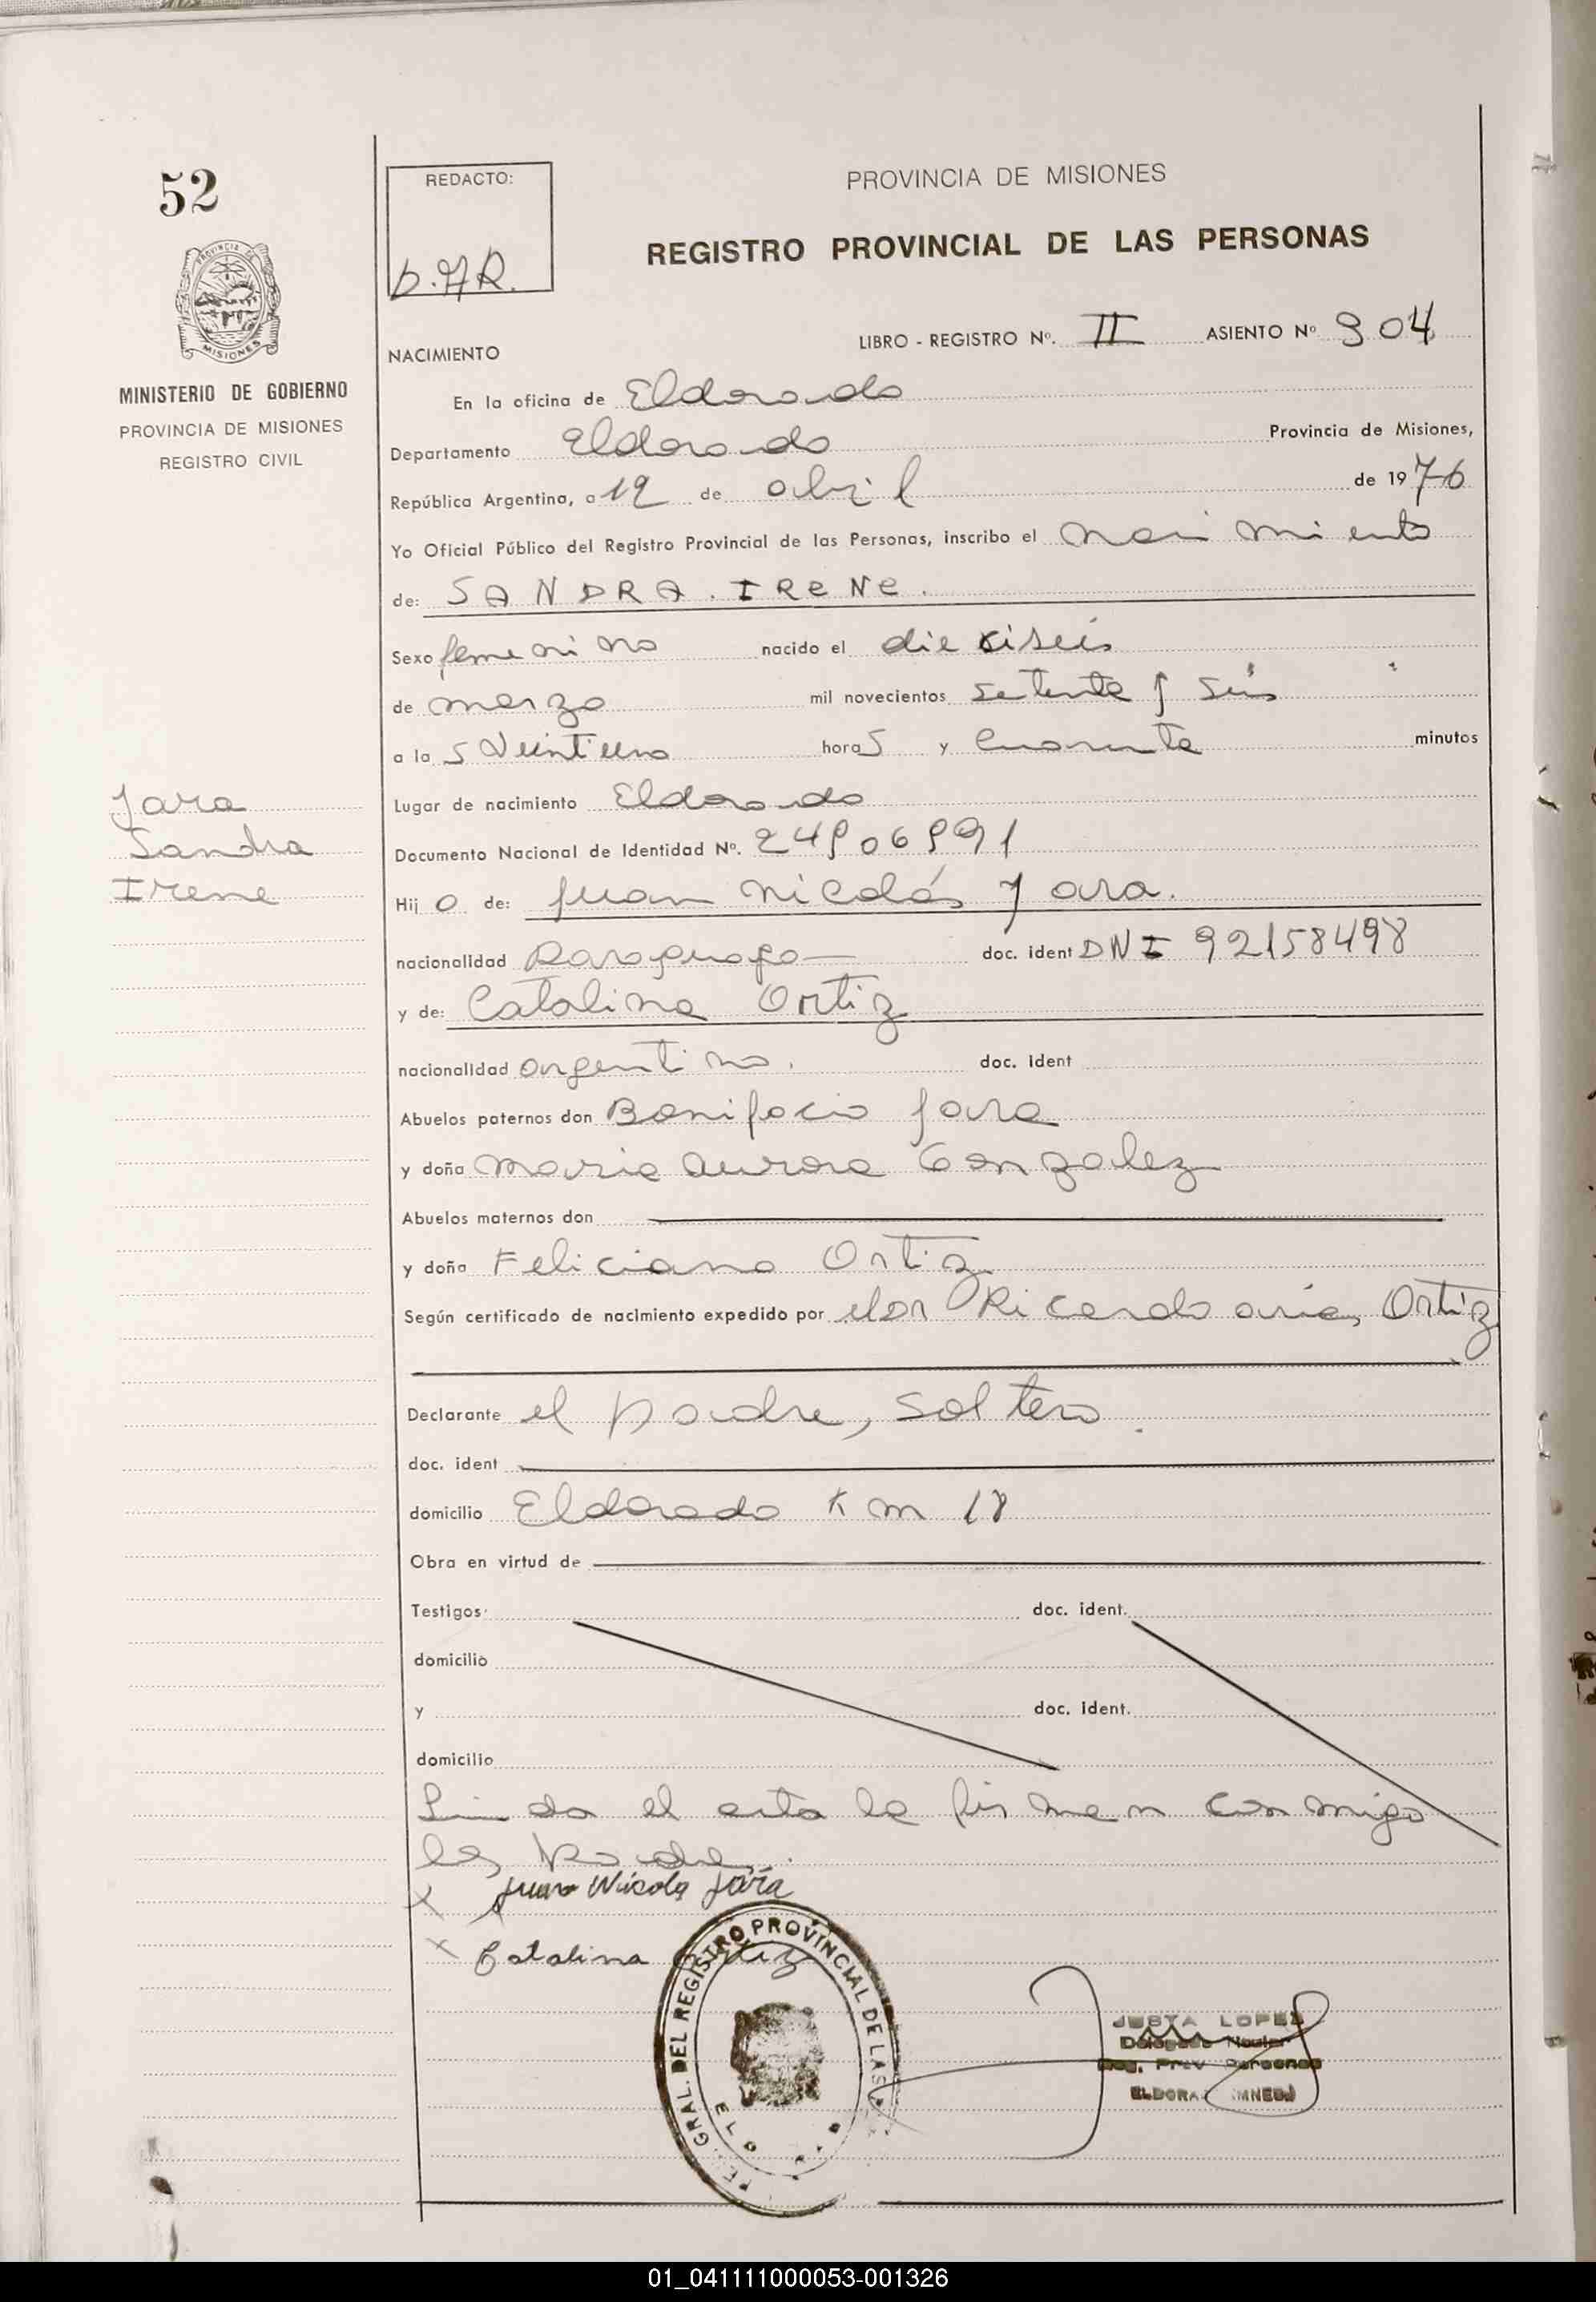 52
PROVINCIA DE MISIONES
MINISTERIO DE GOBIERNO
PROVINCIA DE MISIONES
REGISTRO CIVIL
Jara
Sandra
Irene
REDACTO:
PROVINCIA DE MISIONES
REGISTRO PROVINCIAL DE LAS PERSONAS
LIBRO - REGISTRO Nº. II ASIENTO Nº 304
NACIMIENTO
En la oficina de Eldorado
Departamento Eldorado Provincia de Misiones,
República Argentina, a 12 de abril de 1976
Yo Oficial Público del Registro Provincial de las Personas, inscribo el nacimiento
de: SANDRA. IRENE.
Sexo femenino nacido el dieciseis
de marzo mil novecientos setenta y seis
a las veintiuna horas y cuarenta minutos
Lugar de nacimiento Eldorado
Documento Nacional de Identidad Nº.
Hija de: Juan Nicolás Jara.
nacionalidad Paraguayo doc. ident DNI 92158498
y de: Catalina Ortiz
nacionalidad argentina. doc. ident
Abuelos paternos don Bonifacio Jara
y doña Maria Aurora Gonzalez
Abuelos maternos don
y doña Feliciana Ortiz
Según certificado de nacimiento expedido por el Dr Ricardo Ortiz
Declarante el padre, soltero.
doc. ident
domicilio Eldorado Km 18
Obra en virtud de
Testigos: doc. ident.
domicilio
y doc. ident.
domicilio
el acta la firman conmigo
los padres.
X Juan Nicolas Jara
X Catalina Ortiz
GRAL. DEL REGISTRO PROVINCIAL DE LAS
JUSTA LOPEZ
01_041111000053-001326